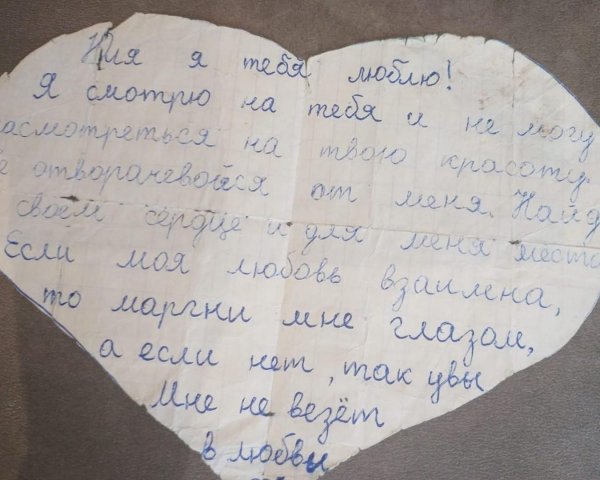 Ния я тебя люблю!
Я смотрю на тебя и не могу
асмотреться на твою красоту.
е отворачевайся от меня. Найд
своем сердце и для меня место
Если моя любовь взаимена,
то маргни мне глазом,
а если нет, так увы
Мне не везёт
в любвы